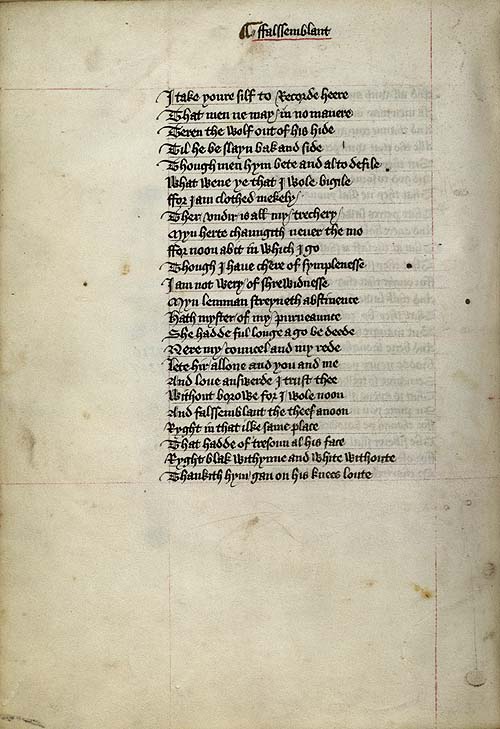 ffalssemblant
I take youre silf to Recorde heere
That men ne may in no manere
Teren the wolf out of his hide
Til he be slayn bak and side
Though men hym bete and al to defile
What wene ye that I wole bigile
ffor I am clothed mekely
Ther vndir is all my trechery
Myn herte chaungith neuer the mo
ffor noon abit in which I go
Though I haue chere of symplenesse
I am not wery of shrewidnesse
Myn lemman streyneth abstinence
Hath myster of my purueaunce
She hadde ful longe ago be deede
Nere my councel and my rede
Lete hir allone and you and me
And loue answerde I trust thee
Without borowe for I wole noon
And falssemblant the theef anoon
Ryght in that ilke same place
That hadde of tresoun al his face
Ryght blak withynne and white withoute
Thankith hym gan on his knees loute